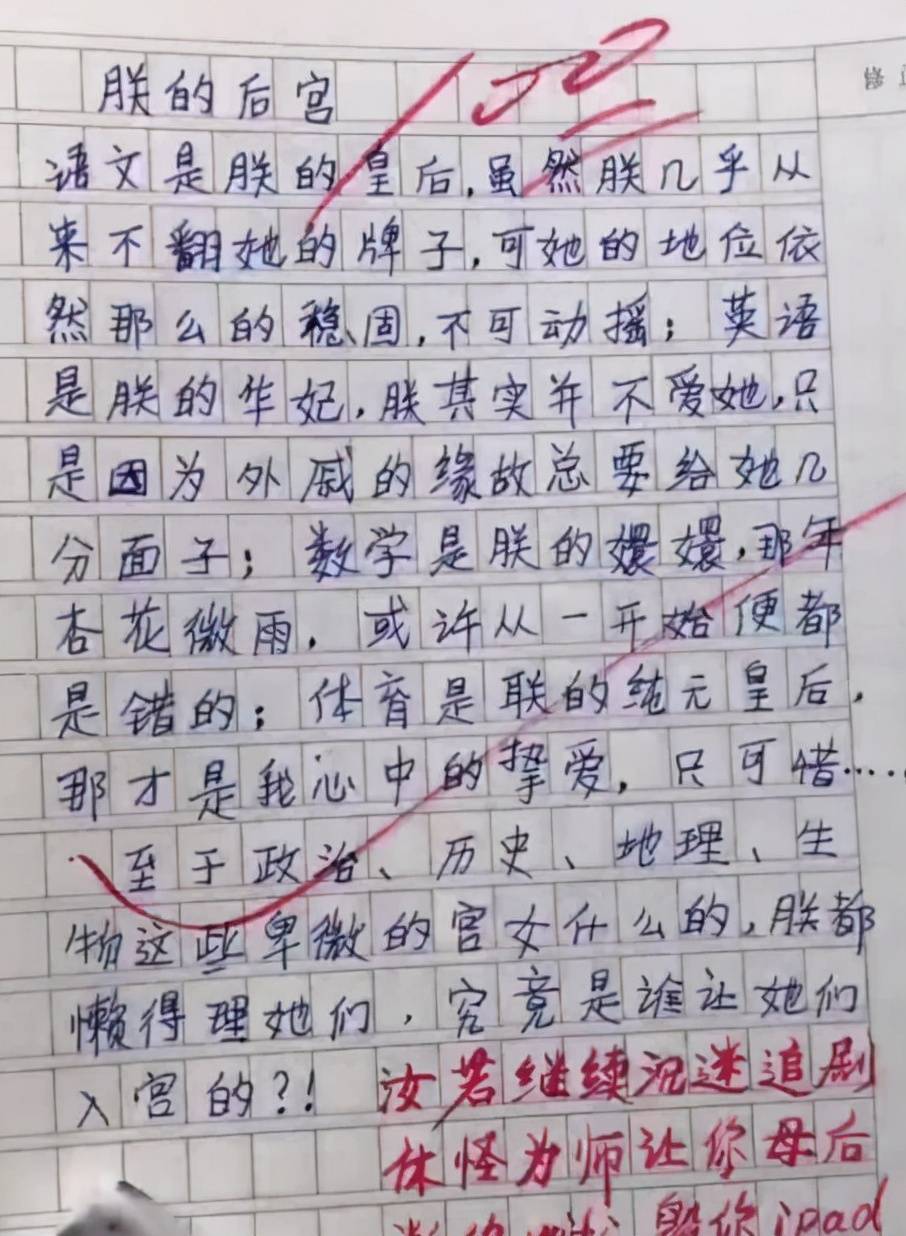 朕的后宫
100
修
语文是朕的皇后,虽然朕几乎从
来不翻她的牌子,可她的地位依
然那么的稳固,不可动摇;英语
是朕的华妃,朕其实并不爱她,只
是因为外戚的缘故总要给她几
分面子;数学是朕的嬛嬛,那年
杏花微雨,或许从一开始便都
是错的;体育是联的纯元皇后,
那才是我心中的挚爱,只可惜……
至于政治、历史、地理、生
物这些卑微的宫女什么的,朕都
懒得理她们,究竟是谁让她们
入宫的?!
汝若继续沉迷追剧
休怪为师让你母后
毁你ipad